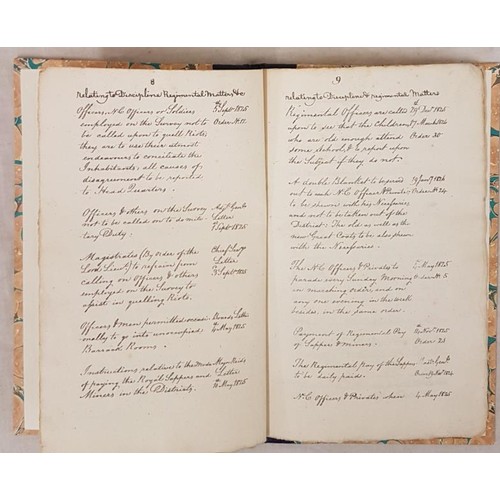 8
relating to Discipline Regimental Matters &c
Officers, N.C. Officers or Soldiers 5th Septr 1825
employed on the Survey not to Order No. 11.
be called upon to quell Riots,
they are to use their utmost
endeavours to conciliate the
Inhabitants, all causes of
disagreement to be reported
to Head Quarters.
Officers & others on the Survey Adjt Genls
not to be called on to do mili- Letter
tary Duty. 7 Septr 1825
Magistrates (By order of the Chief Secy
Lord Lieut) to refrain from Letter
calling on Officers & others 3d Septr 1825
employed on the Survey to
assist in quelling Riots.
Officers & men permitted occasi- Letter
onally to go into unoccupied 4th May 1825
Barrack Rooms.
Instructions relative to the mode Major Reids
of paying the Royal Sappers and Letter
Miners in the Districts. 16 May 1825
9
relating to Discipline & regimental Matters
Regimental Officers are called Decr 1825
upon to see that the Children 17 March 1826
who are old enough attend Order 38
some School, & to report upon
the Subject if they do not.
A double Blanket to be issued 19 Jany 1826
out to each N.C. Officer & Private Order No. 24
to be shewn with his Necessaries
and not to be taken out of the
District. The old as well as the
new Great Coats to be also shewn
with the Necessaries.
The N.C. Officers & Privates to 5 May 1825
parade every Sunday Morning Order No. 5
in marching order, and on
any one evening in the week
besides, in the same order.
Payment of Regimental Pay Novr 1825
of Sappers & Miners. Order 23
The Regimental Pay of the Sappers
to be daily paid.
N.C. Officers & Privates when 4 May 1825